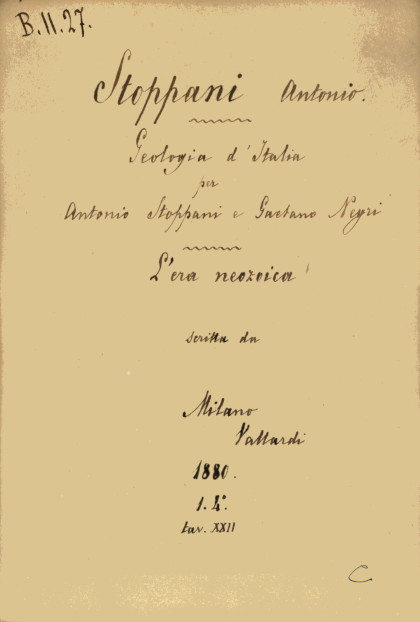 B.11.27.
Stoppani Antonio.
Geologia d'Italia
per
Antonio Stoppani e Gaetano Negri
L'era neozoica
scritta da
Milano
Vallardi
1880.
1. 4°.
tav. XXII
C